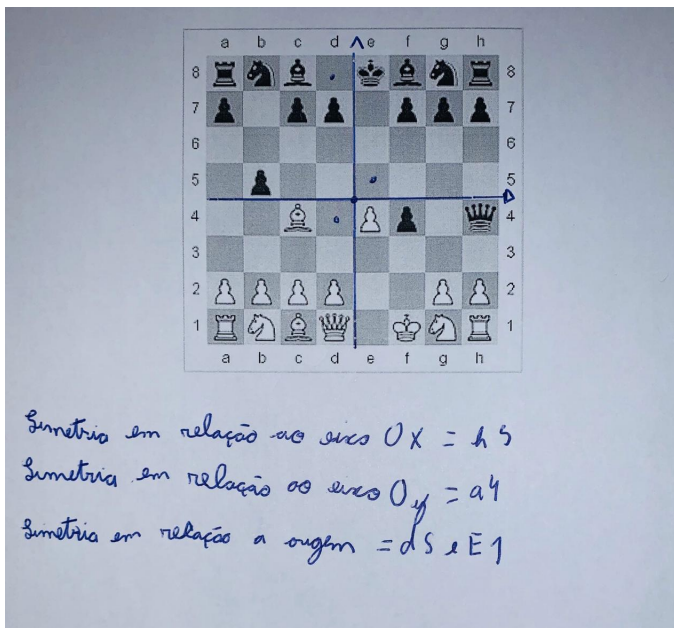 a b c d e f g h
8 8
7 7
6 6
5 5
4 4
3 3
2 2
1 1
a b c d e f g h
Simetria em relação ao eixo OX = h5
Simetria em relação ao eixo Oy = a4
Simetria em relação a origem = d5 e E1